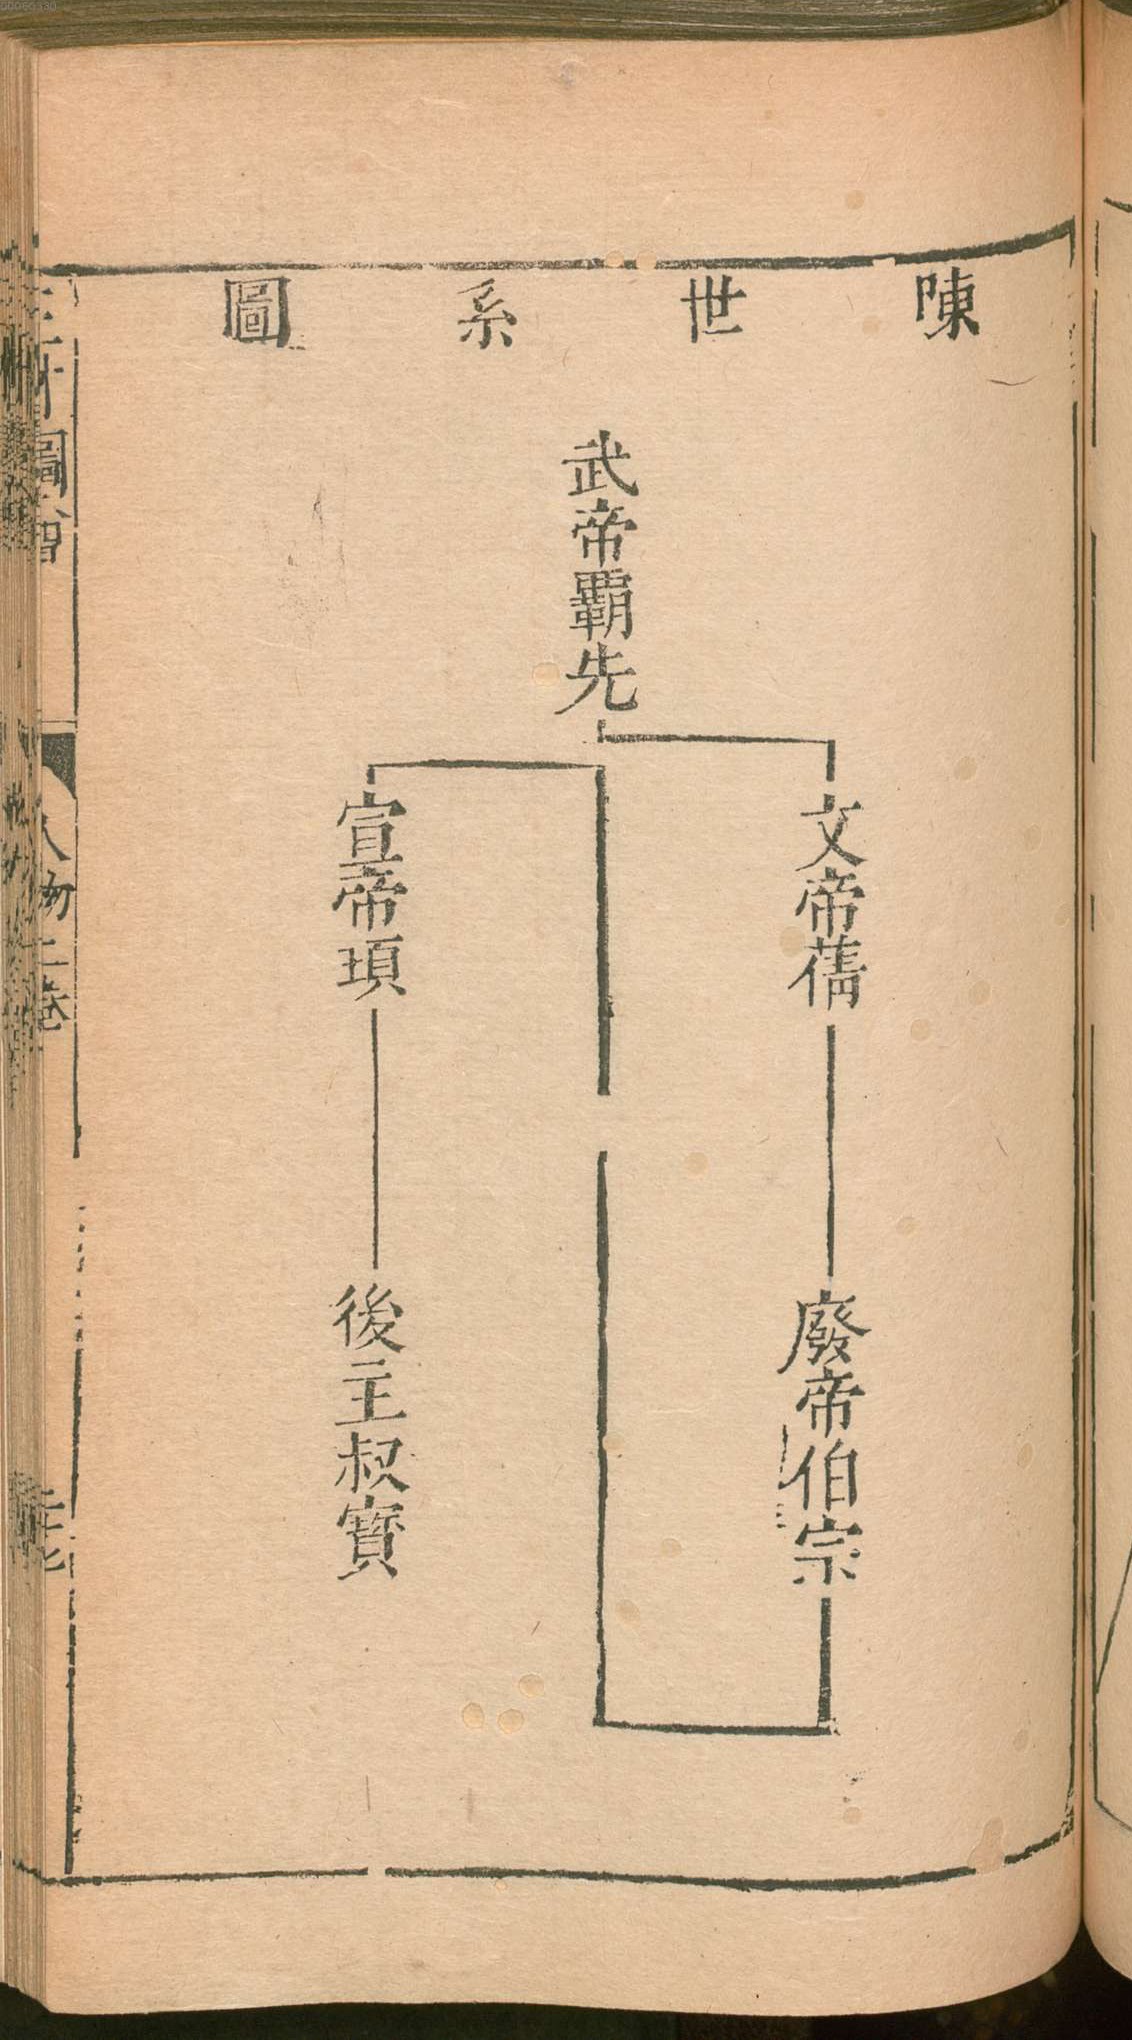 00060330
陳世系圖
武帝覇先
文帝蒨
廢帝伯宗
宣帝頊
後主叔寶
圖會
人物三卷